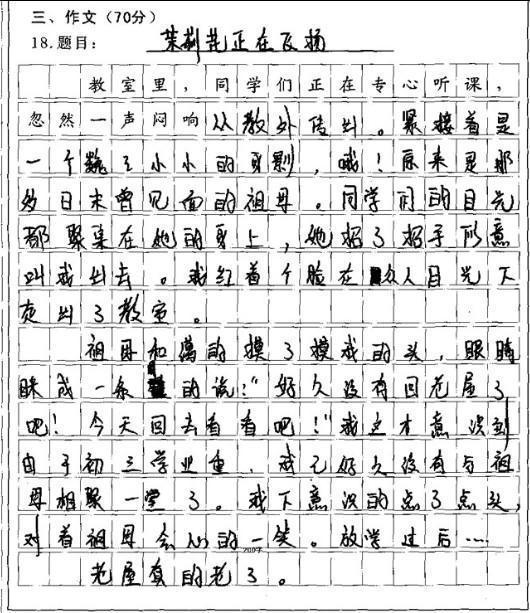 三、作文（70分）
18.题目： 茉莉花正在飞扬
教室里，同学们正在专心听课，
忽然一声闷响从教外传出。紧接着是
一个巍了小小的身影，哦！原来是那
多日未曾见面的祖母。同学们的目光
都聚集在她的身上，她招了招手示意
叫我出去。我红着个脸在众人目光下
走出了教室。
祖母和蔼的摸了摸我的头，眼睛
眯成一条 的说："好久没有回老屋了
吧！今天回去看看吧！"我这才意识到
由于初三学业重，我已好久没有与祖
母相聚一堂了。我下意识的点了点头，
对着祖母会心的一笑。放学过后……
老屋真的老了。